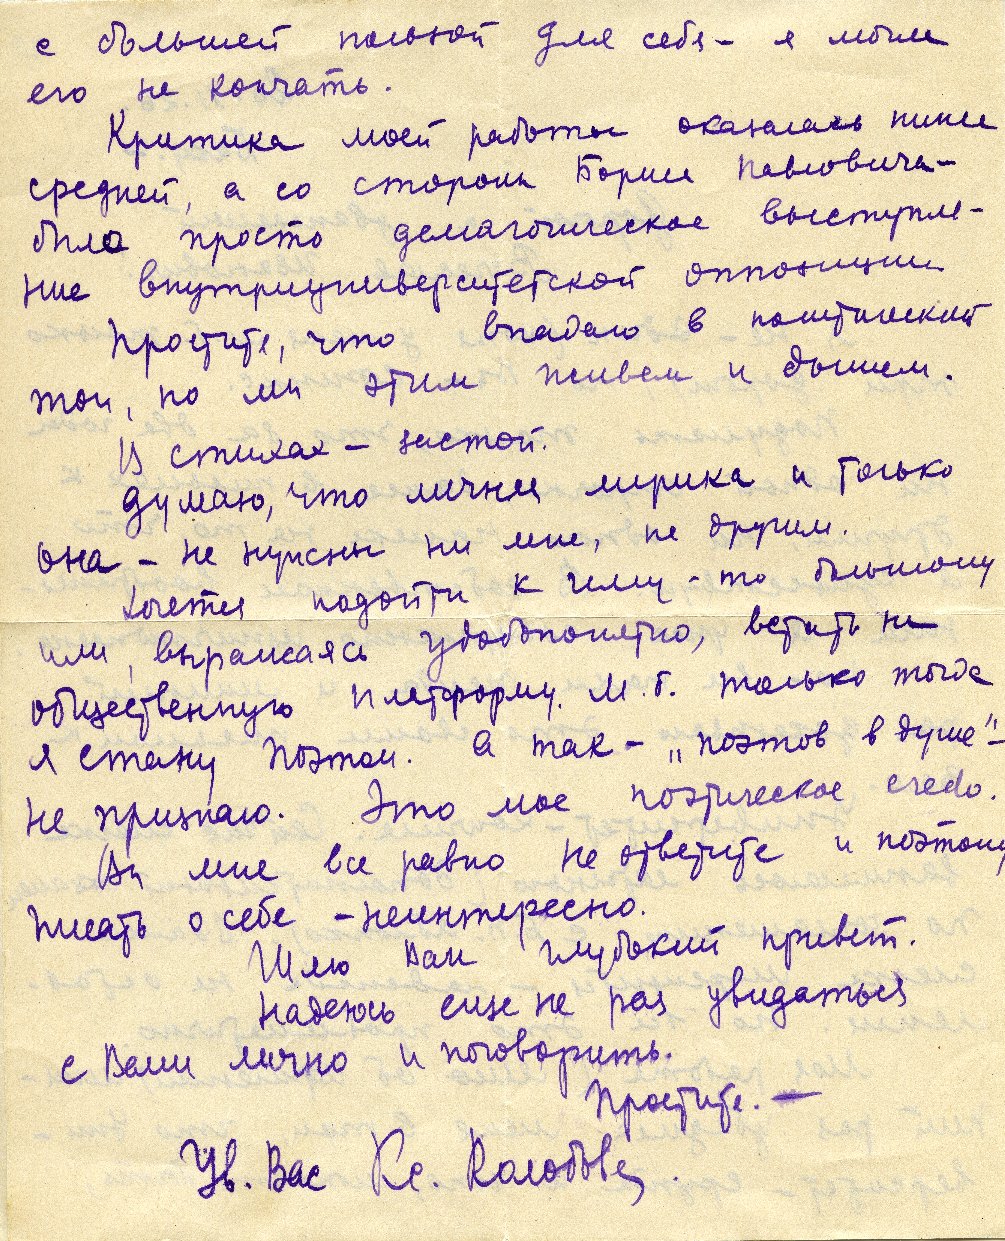 с большей пользой для себя – я могла
его не кончать.
Критика моей работы оказалась ниже
средней, а со стороны Бориса Павловича –
было просто демагогическое выступле-
ние внутриуниверситетской оппозиции
Простите, что впадаю в политический
тон, но мы этим живем и дышим.
В стихах – застой.
Думаю, что личная лирика и только
она – не нужны ни мне, не другим.
Хочется подойти к чему-то большому
или, выражаясь удобопонятно, встать на
общественную платформу. М.б. только тогда
я стану поэтом. А так – „поэтов в душе" –
не признаю. Это мое поэтическое credo.
Вы мне все равно не ответите и поэтому
писать о себе – неинтересно.
Шлю Вам глубокий привет.
Надеюсь еще не раз увидаться
с Вами лично и поговорить.
Простите. –
Ув. Вас Кс. Колобова.